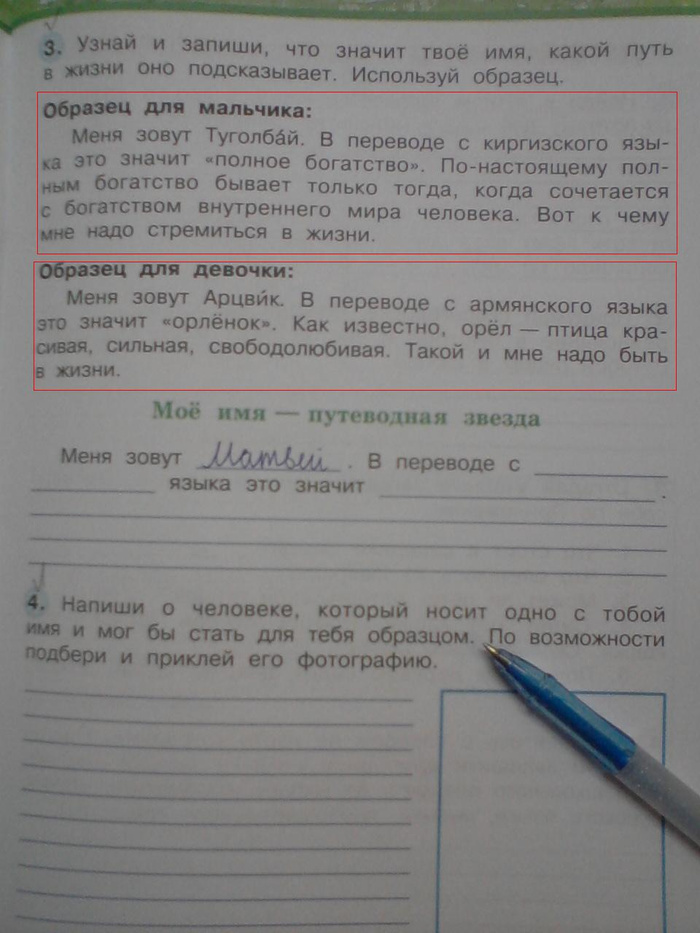 3. Узнай и запиши, что значит твоё имя, какой путь
в жизни оно подсказывает. Используй образец.
Образец для мальчика:
Меня зовут Туголба́й. В переводе с киргизского язы-
ка это значит «полное богатство». По-настоящему пол-
ным богатство бывает только тогда, когда сочетается
с богатством внутреннего мира человека. Вот к чему
мне надо стремиться в жизни.
Образец для девочки:
Меня зовут Арцви́к. В переводе с армянского языка
это значит «орлёнок». Как известно, орёл — птица кра-
сивая, сильная, свободолюбивая. Такой и мне надо быть
в жизни.
Моё имя — путеводная звезда
Меня зовут Матвей. В переводе с
языка это значит .
4. Напиши о человеке, который носит одно с тобой
имя и мог бы стать для тебя образцом. По возможности
подбери и приклей его фотографию.